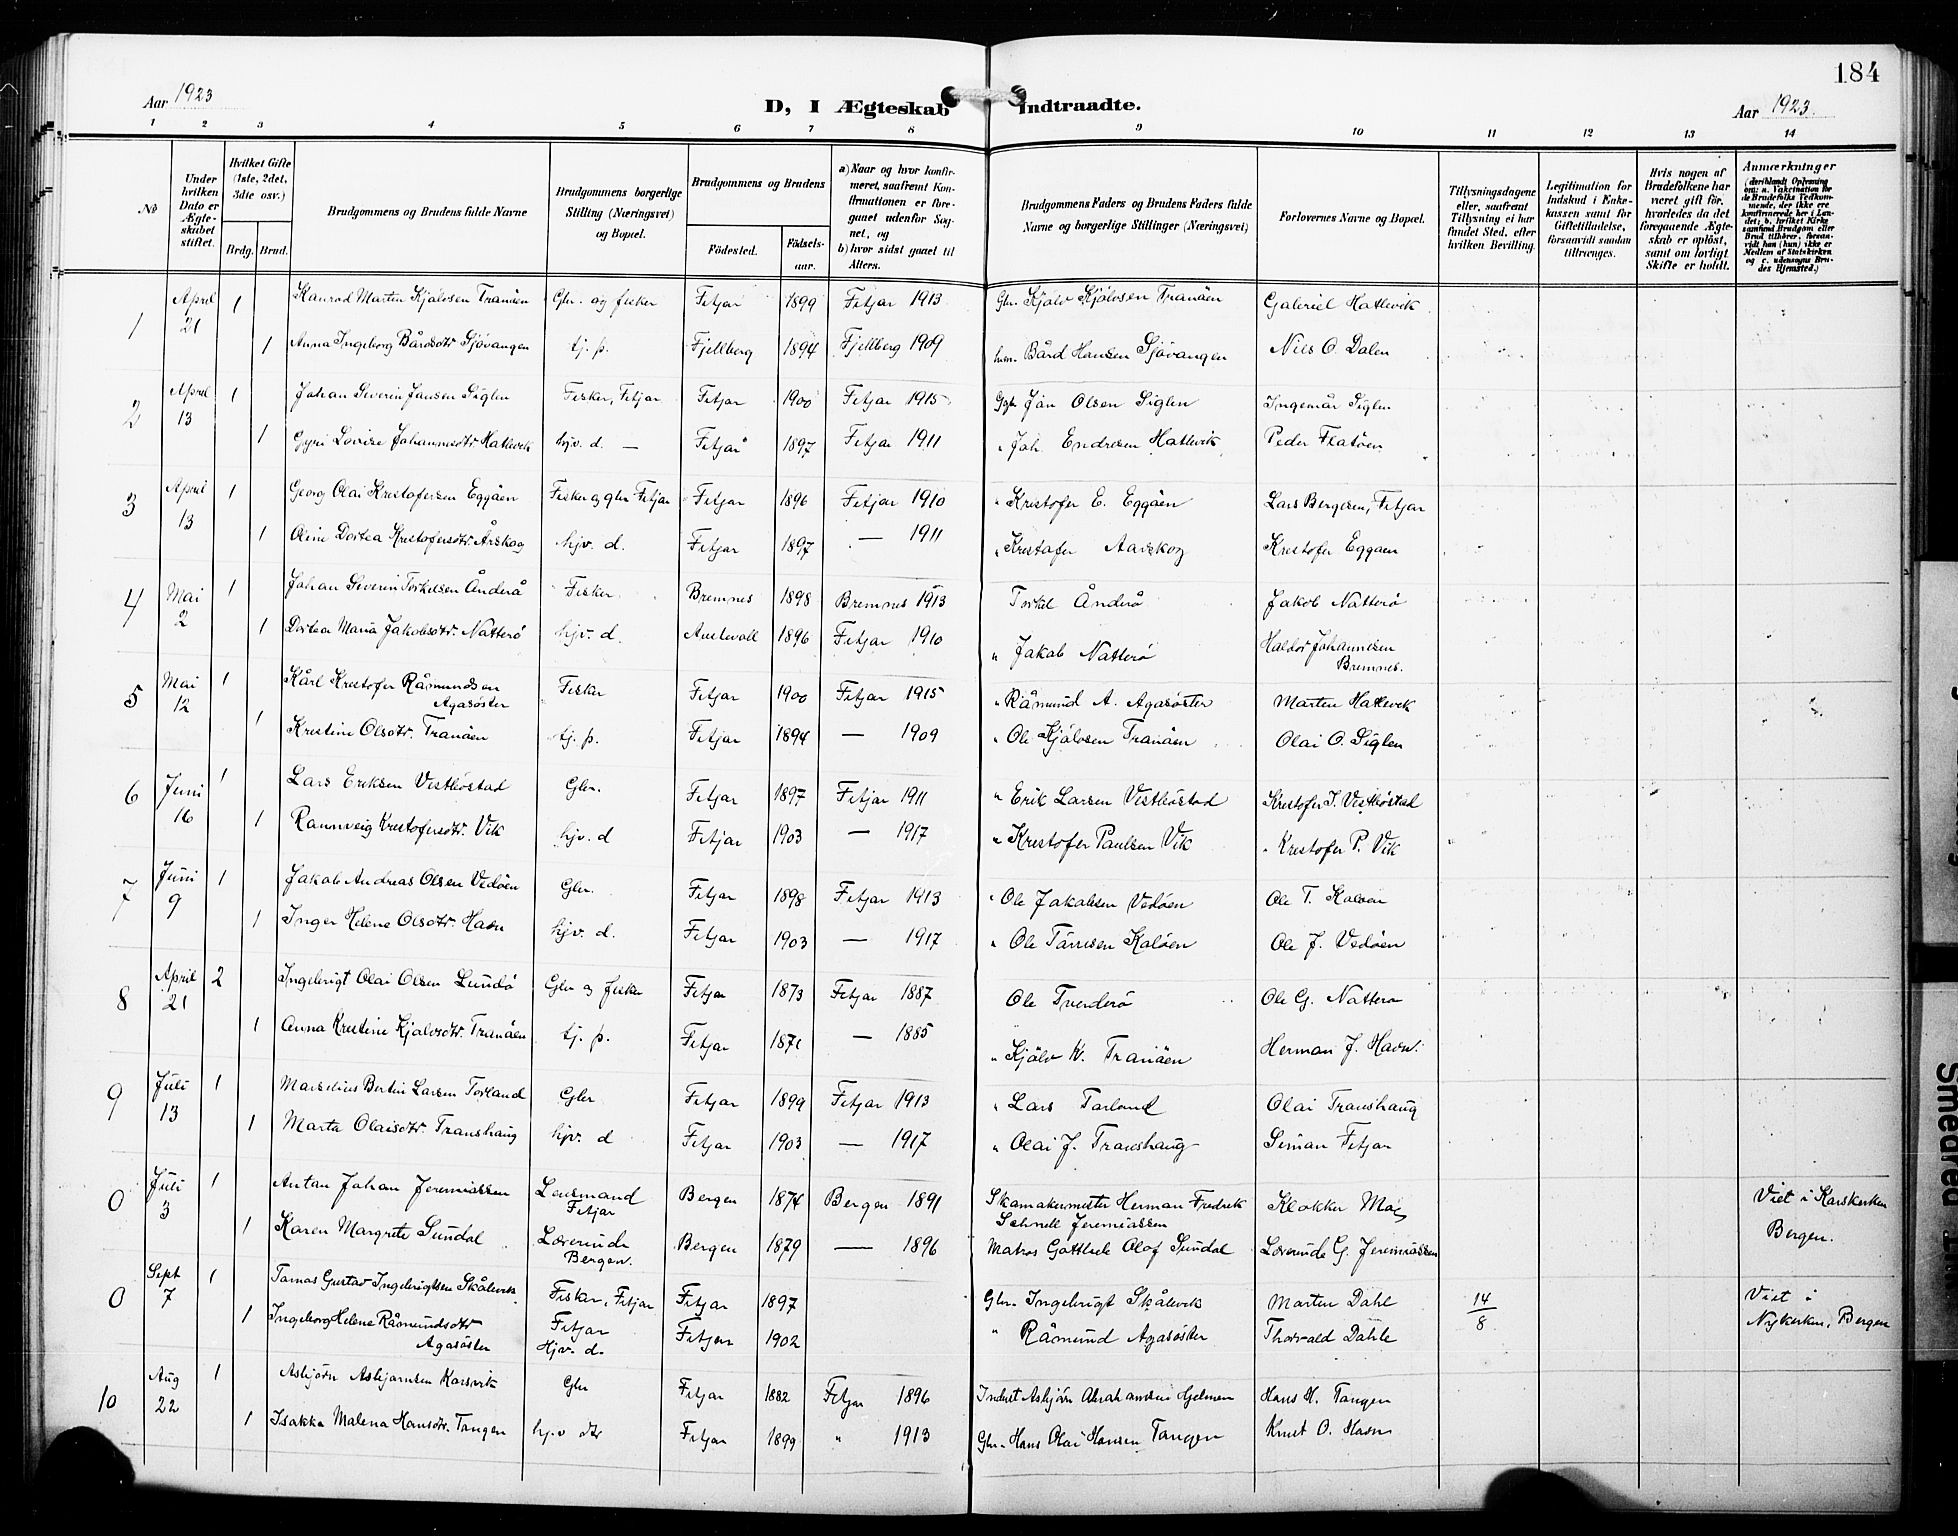 184
Aar 1923
D, I Ægteskab Indtraadte.
Aar 1923.
1 2 3 4 5 6 7 8 9 10 11 12 13 14
No
Under hvilken Dato er Ægteskabet stiftet.
Hvilket Gifte (1ste, 2det, 3die osv.)
Brdg. Brud.
Brudgommens og Brudens fulde Navne
Brudgommens borgerlige Stilling (Næringsvei) og Bopæl.
Brudgommens og Brudens
Fødested. Fødselsaar.
a) Naar og hvor konfirmeret, saafremt Konfirmationen er foregaaet udenfor Sognet, og
b) hvor sidst gaaet til Alters.
Brudgommens Faders og Brudens Faders fulde Navne og borgerlige Stillinger (Næringsvei)
Forlovernes Navne og Bopæl.
Tillysningsdagene eller, saafremt Tillysning ei har fundet Sted, efter hvilken Bevilling.
Legitimation for Indskud i Enkekassen samt for Giftetilladelse, forsaavidt saadan tiltrænges.
Hvis nogen af Brudefolkene har været gift før, hvorledes da det foregaaende Ægteskab er opløst, samt om lovligt Skifte er holdt.
Anmærkninger
(deriblandt Oplysning om: a. Vakcination for de Brudefolks Vedkommende, der ikke ere konfirmerede her i Landet; b. hvilket Kirkesamfund Brudgom eller Brud tilhører, forsaavidt han (hun) ikke er Medlem af Statskirken og c. udensogns Brudes Hjemsted.)
1 April 21 1 Konrad Martin Kjålvsen Tranåen Gbr. og fisker Fitjar 1899 Fitjar 1913 Gbr. Kjålv Kjålvsen Tranåen Gabriel Hatlevik
1 Anna Ingeborg Bårdsdtr Sjövangen tj. p. Fjellberg 1894 Fjellberg 1909 Bård Hansen Sjövangen Nils O. Dalen
2 April 13 1 Johan Severin Jansen Siglen Fisker, Fitjar Fitjar 1900 Fitjar 1915 Jan Olsen Siglen Ingemår Siglen
1 Gyri Lovise Johannesdtr Hatlevik hjv. d. — Fitjar 1897 Fitjar 1911 " Joh. Endresen Hatlevik Peder Flatöen
3 April 13 1 Georg Olai Kristofersen Eggöen Fisker og gbr Fitjar Fitjar 1896 Fitjar 1910 " Kristofer E. Eggöen Lars Bergesen, Fitjar
1 Oline Dortea Kristofersdtr. Årskog hjv. d. Fitjar 1897 — 1911 " Kristofer Aarskog Kristofer Eggöen
4 Mai 2 1 Johan Severin Torkelsen Ånderå Fisker Bremnes 1898 Bremnes 1913 Torkel Ånderö Jakob Natterö
1 Dortea Maria Jakobsdtr. Natterö hjv. d. Austevoll 1896 Fitjar 1910 " Jakob Natterö Haldor Johannesen
Bremnes.
5 Mai 12 1 Kårl Kristofer Råsmundsen
Agasöster Fisker Fitjar 1900 Fitjar 1915 " Råsmund A. Agasöster Martin Hatlevik
1 Kristine Olsdtr. Tranåen tj. p. Fitjar 1894 — 1909 " Ole Kjålvsen Tranåen Olai O. Siglen
6 Juni 16 1 Lars Eriksen Vestböstad Gbr. Fitjar 1897 Fitjar 1911 " Erik Larsen Vestböstad Kristofer I. Vestböstad
1 Rannveig Kristofersdtr. Vik hjv. d Fitjar 1903 — 1917 " Kristofer Paulsen Vik " Kristofer P. Vik
7 Juni 9 1 Jakob Andreas Olsen Vedöen Gbr. Fitjar 1898 Fitjar 1913 " Ole Jakobsen Vedöen Ole T. Kalöen
1 Inger Helene Olsdtr. Havn hjv. d. Fitjar 1903 — 1917 " Ole Tårresen Kalöen Ole J. Vedöen
8 April 21 2 Ingebrigt Olai Olsen Sundö Gbr og fisker Fitjar 1873 Fitjar 1887 Ole Tverderö Ole G. Natterö
1 Anna Kristine Kjålvsdtr. Tranåen tj. p. Fitjar 1871 — 1885 " Kjålv K. Tranåen Herman J. Havn.
9 Juli 13 1 Marselius Bertin Larsen Torland Gbr Fitjar 1899 Fitjar 1913 " Lars Torland Olai Transhaug
1 Marta Olaisdtr. Transhaug hjv. d Fitjar 1903 — 1917 " Olai J. Transhaug Simon Fitjar
0 Juli 3 1 Anton Johan Jeremiassen Lensmand
Fitjar Bergen 1874 Bergen 1891 Skomakermester Herman Fredrik
Schnell Jeremiassen Klokker Mo Viet i Korskirken
1 Karen Margrete Sundal Lærerinde
Bergen. Bergen 1879 — 1896 Matros Gottlieb Olof Sundal Lærerinde G. Jeremiassen Bergen.
0 Sept 7 1 Tomas Gustav Ingebrigtsen Skålevik Fisker, Fitjar Fitjar 1897 Gbr. Ingebrigt Skålevik Martin Dahl 14/8 Viet i
1 Ingeborg Helene Råsmundsdtr
Agasöster Fitjar
Hjv. d. Fitjar 1902 " Råsmund Agasöster Thorvald Dahle Nykirken, Bergen
10 Aug 22 1 Asbjörn Asbjørnsen Korsvik Gbr Fitjar 1882 Fitjar 1896 Inderst Asbjörn Abrahamsen Hjelmen Hans H. Tangen
1 Isakka Malena Hansdtr. Tangen hjv dtr Fitjar 1899 " 1913 Gbr. Hans Olai Hansen Tangen Knut O. Havn